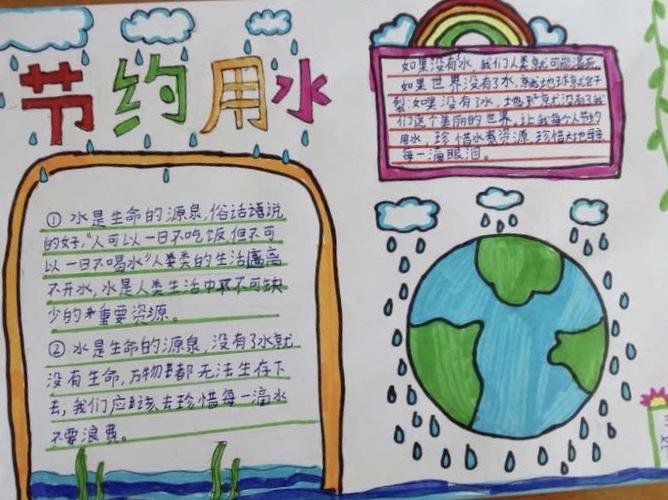 节约用水
如果没有水,我们人类就可能渴死
如果世界没有了水,
裂如果没有了水,地球就没有了我
们这个美丽的世界,让我每个人节约
用水,珍惜水资源,珍惜大地母
每一滴眼泪。
① 水是生命的源泉,俗话说
的好,“人可以一日不吃饭,但不可
以一日不喝水”人类的生活离
不开水,水是人类生活中不可缺
少的重要资源。
② 水是生命的源泉,没有了水就
没有生命,万物都无法生存下
去,我们应该去珍惜每一滴水
不要浪费。